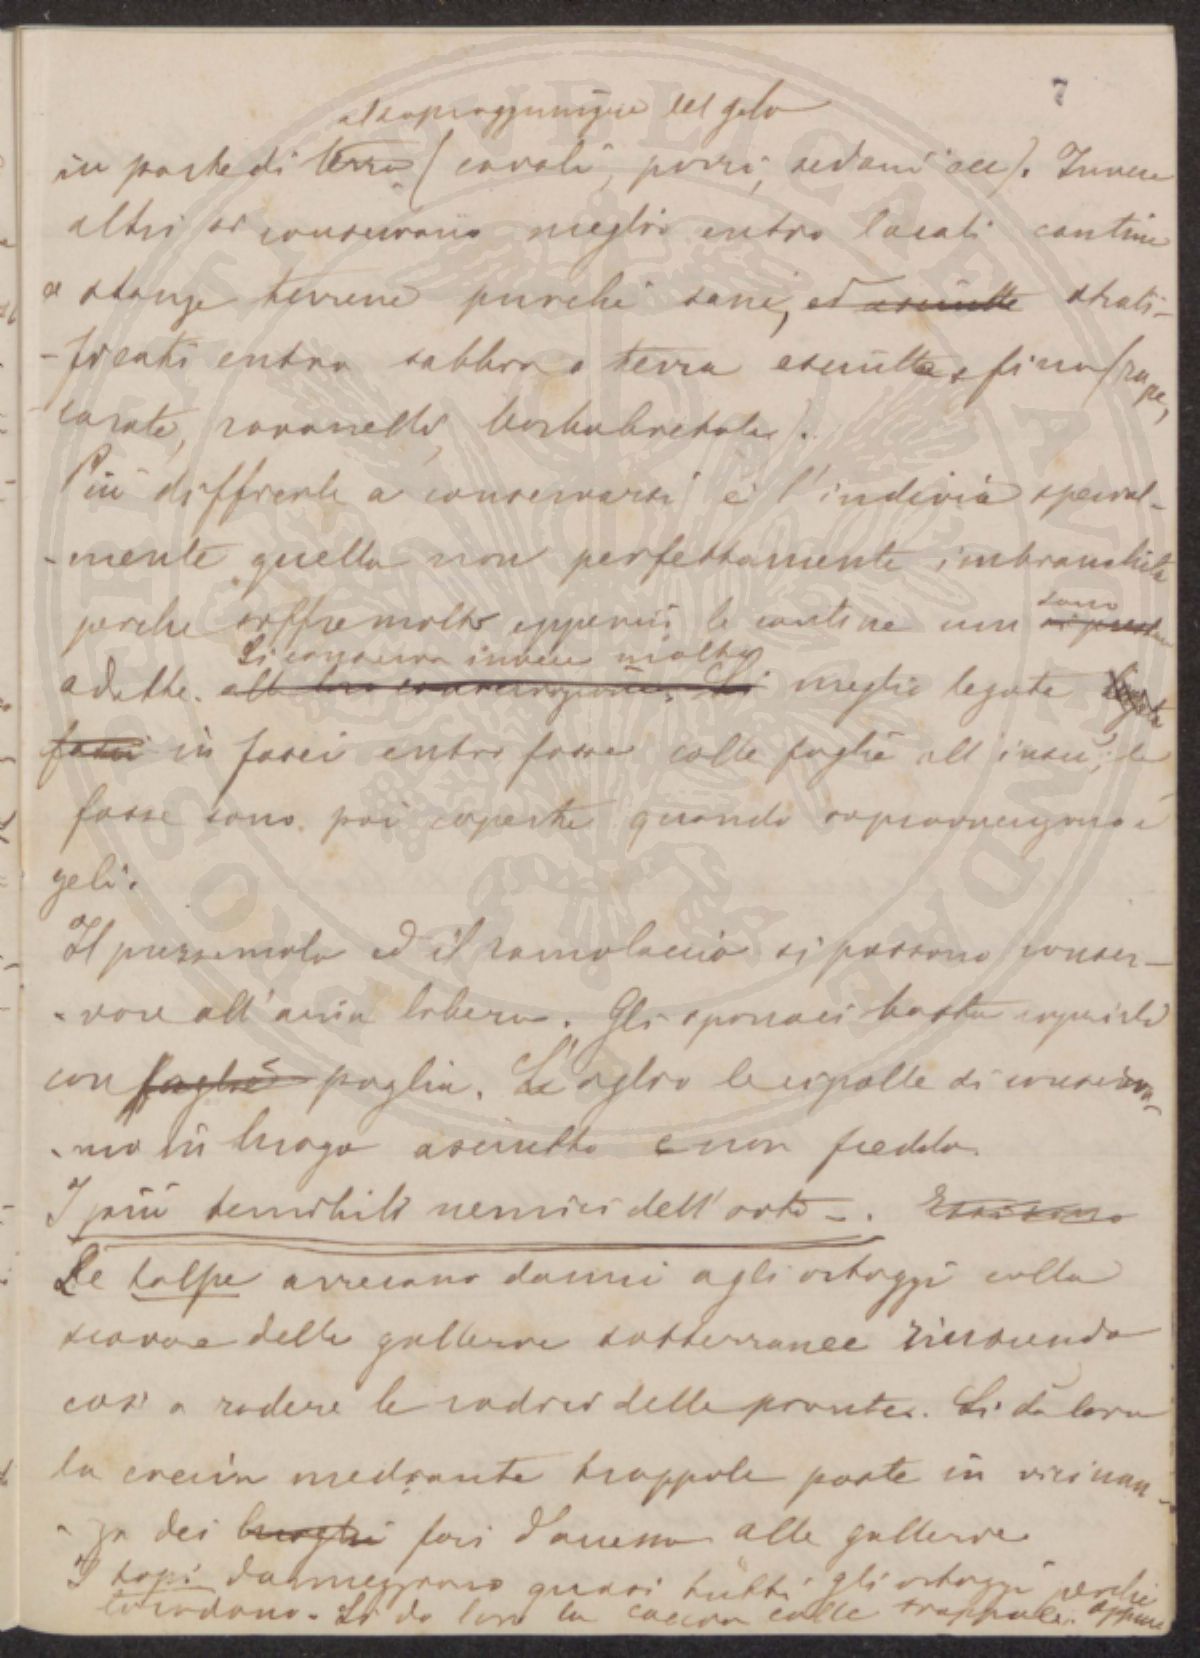 7
al sopraggiungere del gelo
in parte di terra (cavoli, porri, sedani ecc). Invece
altri si conservano meglio entro locali cantine
o stanze terrene purchè sane, ed asciutte strati-
-ficati entro sabbia o terra asciutta e fina (rape,
carote, ravanelli, barbabietole).
Più difficile a conservarsi è l'indivia special-
-mente quella non perfettamente imbianchita
perche soffre molto eppercui le cantine non sono
si prestano
Si conserva invece molto
adatte. alla loro conservazione. Si meglio legata legata
fasci in fasci entro fosse colle foglie all'insù; le
fosse sono poi coperte quando sopravvengono i
geli.
Il prezzemolo ed il ramolaccio si possono conser-
-vare all'aria libera. Gli spinaci basta coprirli
con foglie paglia. L'aglio le cipolle si conserva-
-no in luogo asciutto e non freddo.
I più temibili nemici dell'orto -. Essi sono
Le talpe arrecano danni agli ortaggi collo
scavare delle gallerie sotterranee riuscendo
così a rodere le radici delle piante. Si dà loro
la caccia mediante trappole poste in vicinan-
-za dei luoghi fori d'accesso alle gallerie.
I topi danneggiano quasi tutti gli ortaggi perchè
li rodono. Si dà loro la caccia colle trappole. oppure